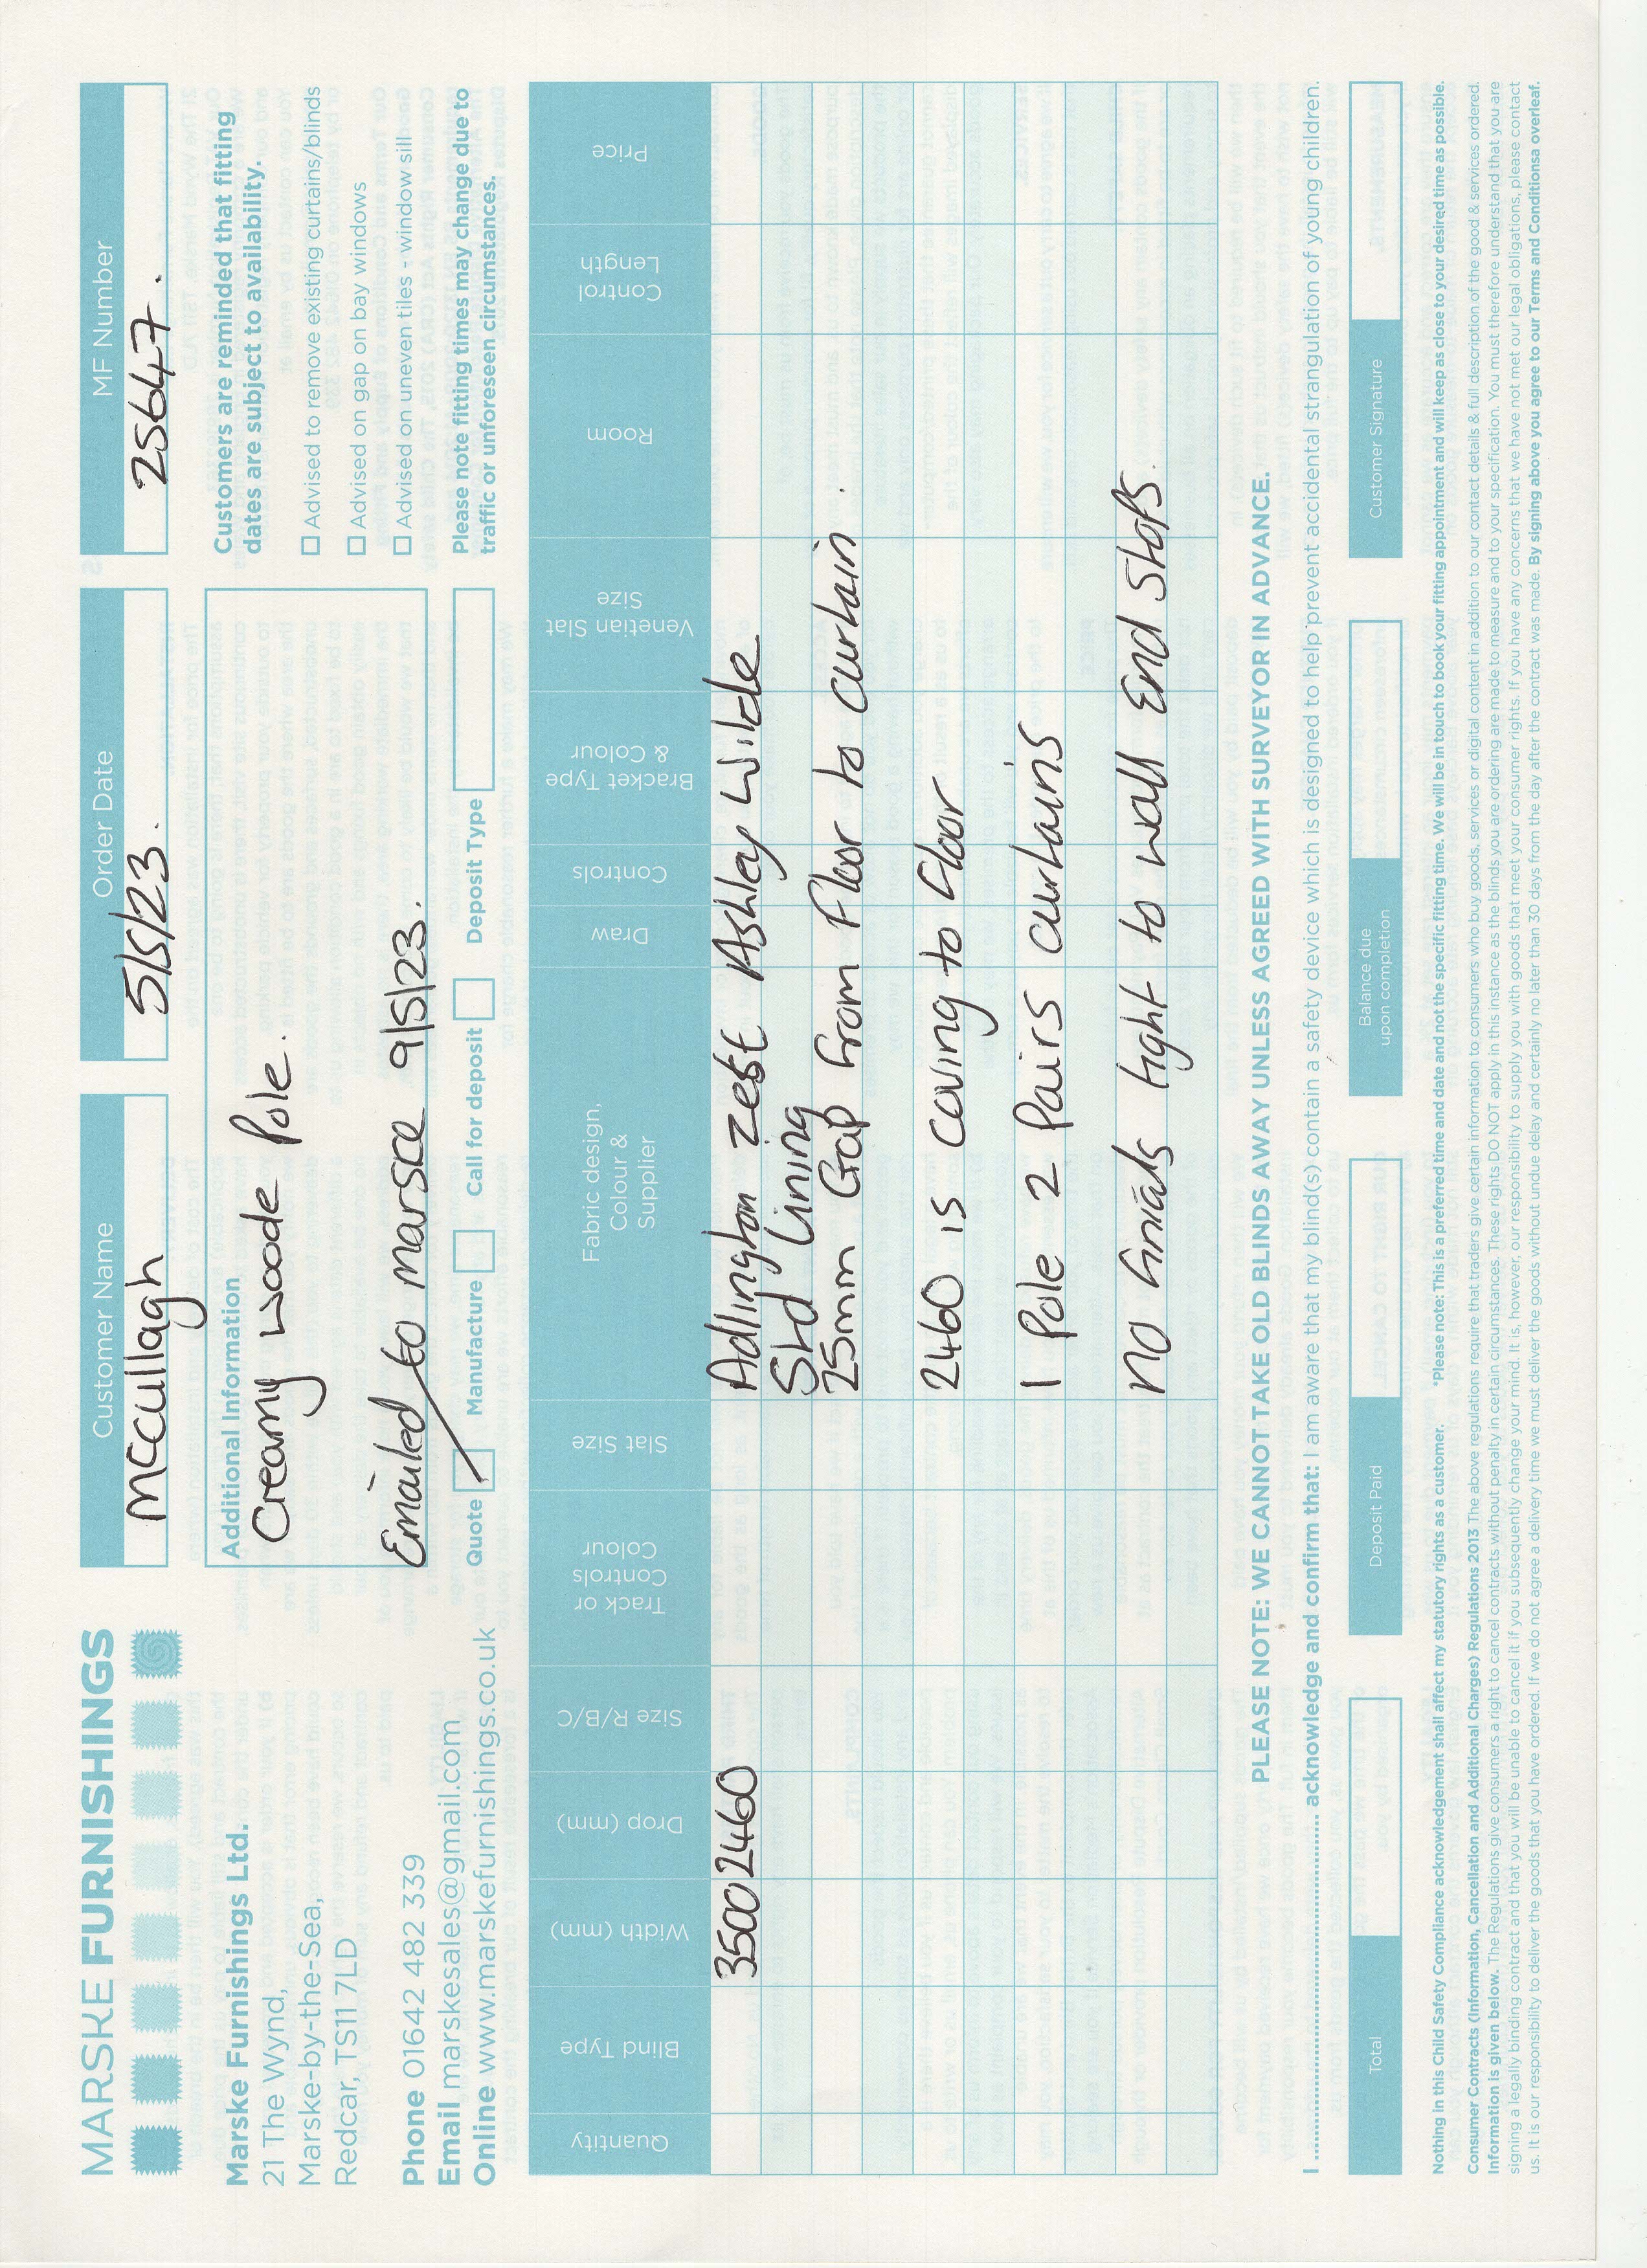 MARSKE FURNISHINGS
Marske Furnishings Ltd.
21 The Wynd,
Marske-by-the-Sea,
Redcar, TS11 7LD
Phone 01642 482 339
Email marskesales@gmail.com
Online www.marskefurnishings.co.uk
Customer Name
McCullagh
Order Date
5/5/23.
MF Number
25647.
Additional Information
Creamy woode Pole.
Emailed to marsce 9/5/23.
Quote
Manufacture
Call for deposit
Deposit Type
Customers are reminded that fitting
dates are subject to availability.
Advised to remove existing curtains/blinds
Advised on gap on bay windows
Advised on uneven tiles - window sill
Please note fitting times may change due to
traffic or unforeseen circumstances.
Quantity
Blind Type
Width (mm)
Drop (mm)
Size R/B/C
Track or
Controls
Colour
Slat Size
Fabric design,
Colour &
Supplier
Draw
Controls
Bracket Type
& Colour
Venetian Slat
Size
Room
Control
Length
Price
3500 2460 Adlington zest Ashley Wilde
Std Lining
25mm Gap from Floor to curtain.
2460 is coving to floor
1 Pole 2 Pairs curtains
No finials tight to wall End Stops.
PLEASE NOTE: WE CANNOT TAKE OLD BLINDS AWAY UNLESS AGREED WITH SURVEYOR IN ADVANCE.
I ........................ acknowledge and confirm that: I am aware that my blind(s) contain a safety device which is designed to help prevent accidental strangulation of young children.
Total
Deposit Paid
Balance due
upon completion
Customer Signature
Nothing in this Child Safety Compliance acknowledgement shall affect my statutory rights as a customer. *Please note: This is a preferred time and date and not the specific fitting time. We will be in touch to book your fitting appointment and will keep as close to your desired time as possible.
Consumer Contracts (Information, Cancellation and Additional Charges) Regulations 2013 The above regulations require that traders give certain information to consumers who buy goods, services or digital content in addition to our contact details & full description of the good & services ordered.
Information is given below. The Regulations give consumers a right to cancel contracts without penalty in certain circumstances. These rights DO NOT apply in this instance as the blinds you are ordering are made to measure and to your specification. You must therefore understand that you are
signing a legally binding contract and that you will be unable to cancel it if you subsequently change your mind. It is, however, our responsibility to supply you with goods that meet your consumer rights. If you have any concerns that we have not met our legal obligations, please contact
us. It is our responsibility to deliver the goods that you have ordered. If we do not agree a delivery time we must deliver the goods without undue delay and certainly no later than 30 days from the day after the contract was made. By signing above you agree to our Terms and Conditionsa overleaf.